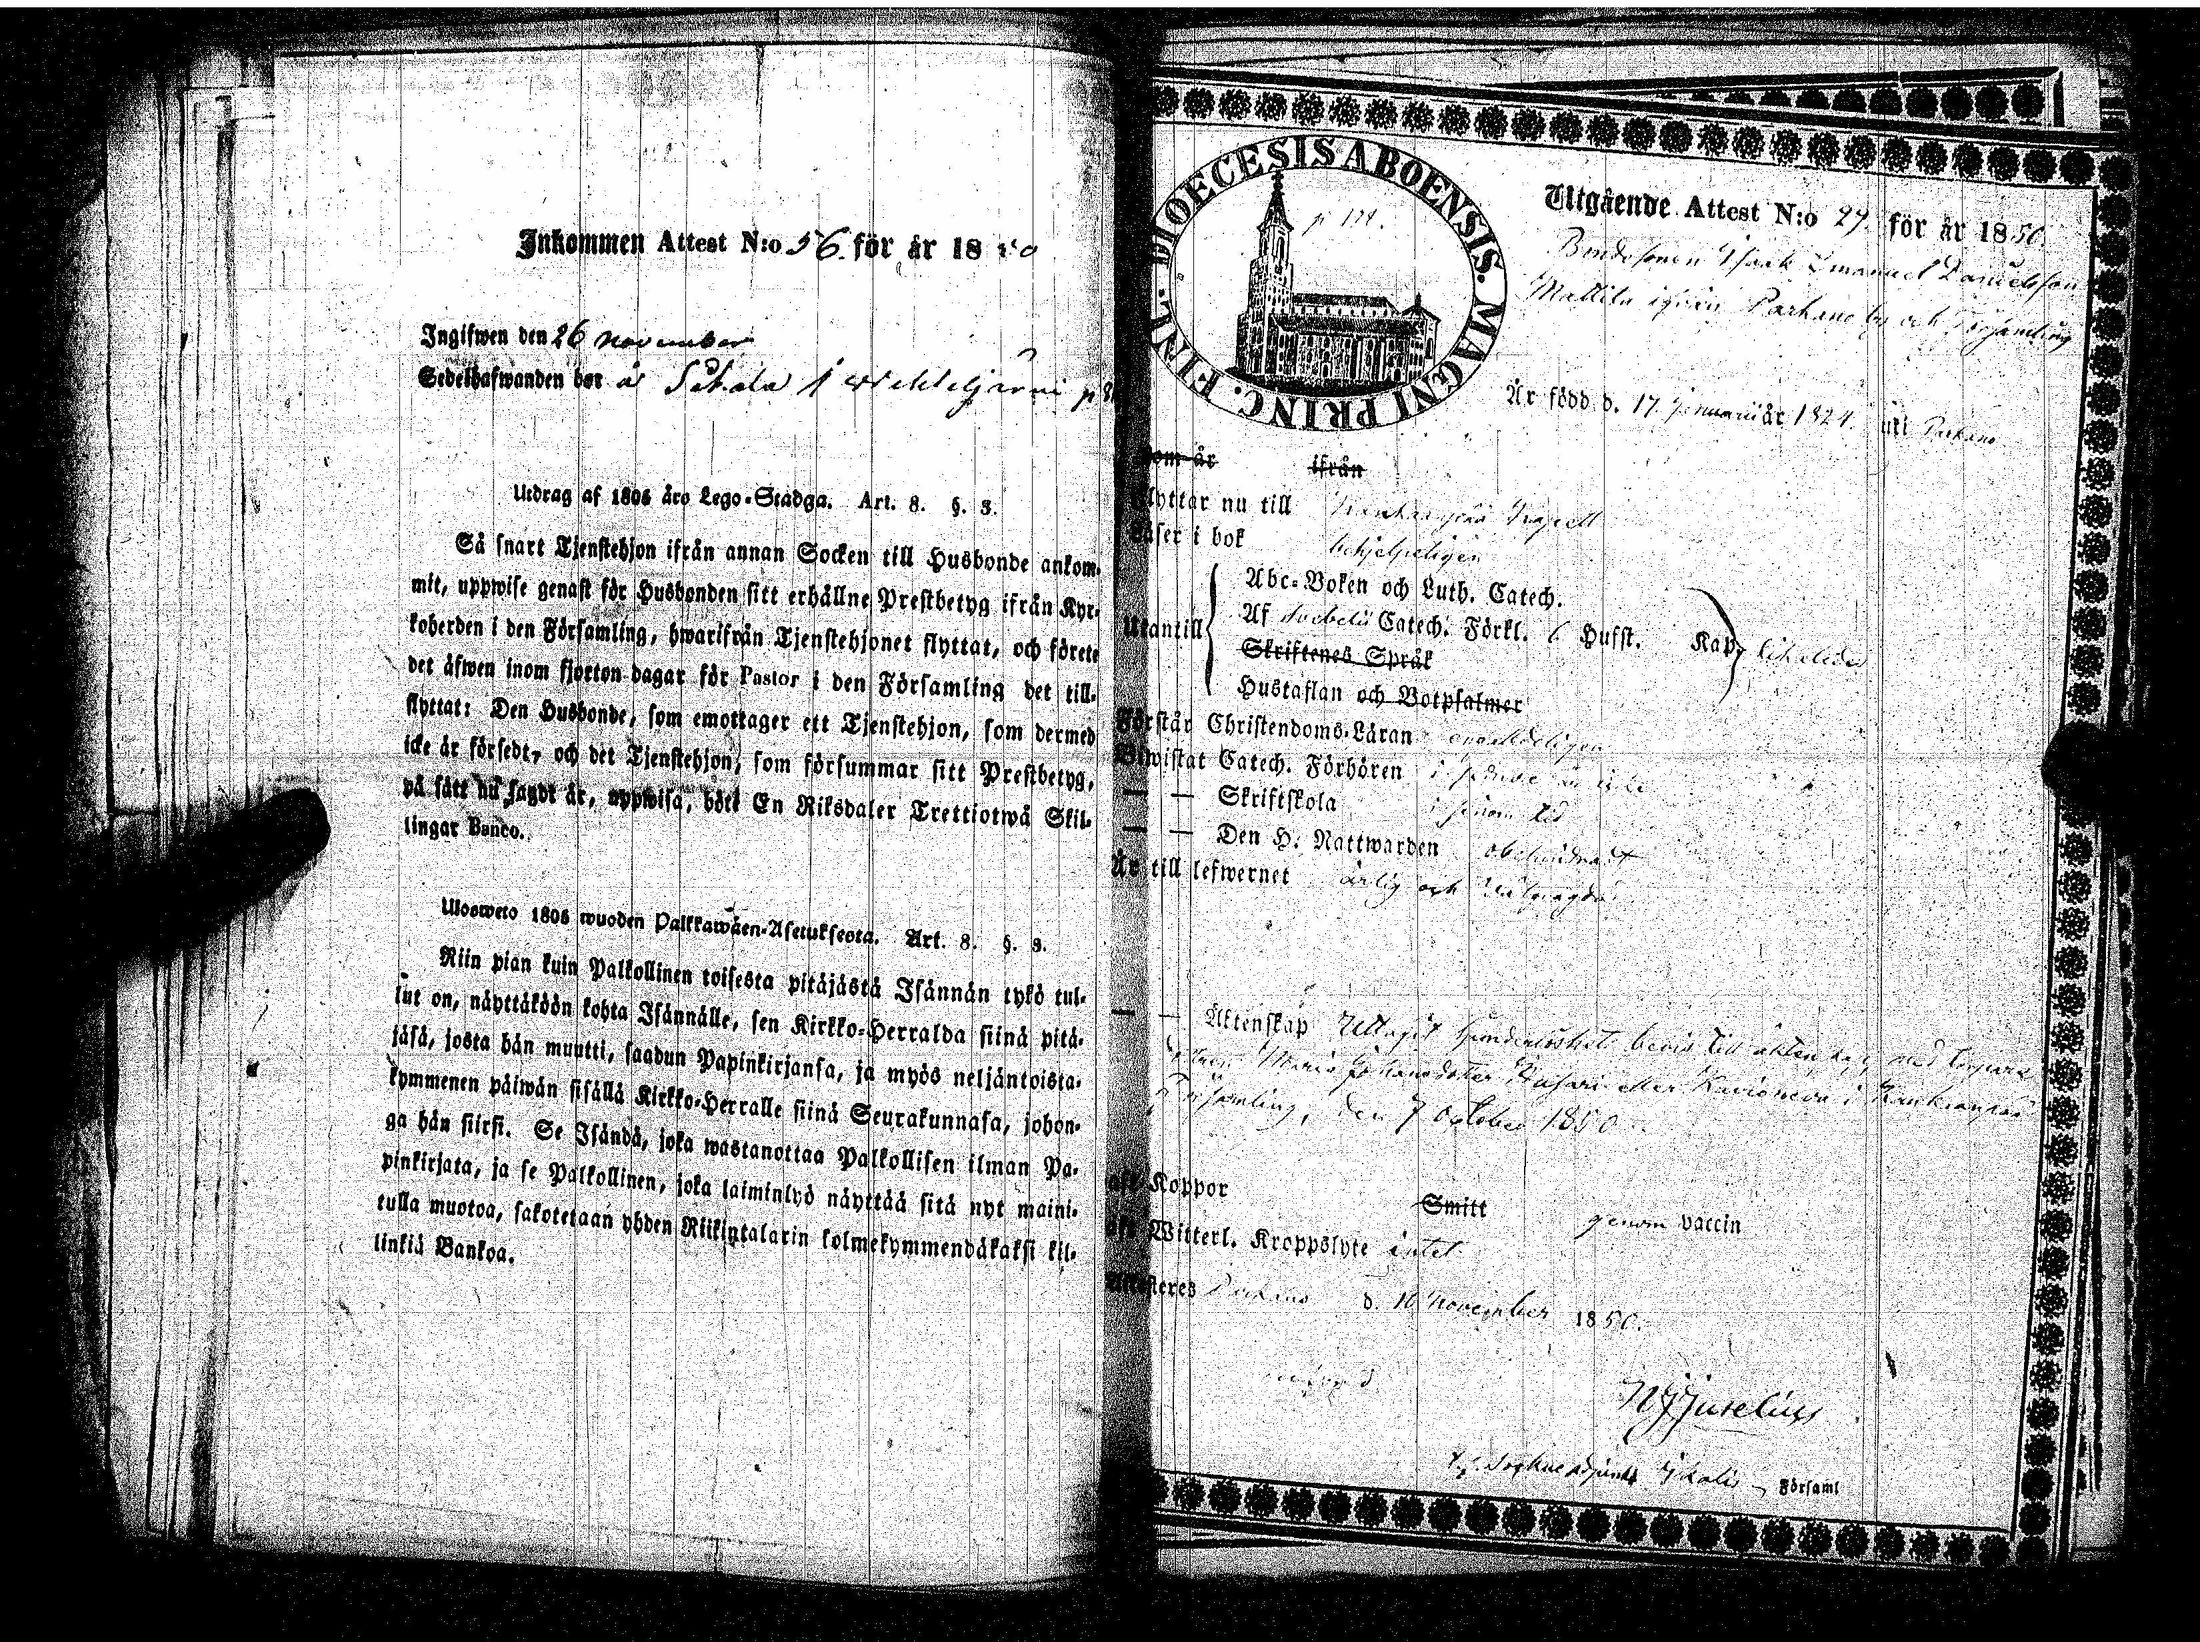 Inkommen Attest N:o 56. för år 1850
Ingifwen den 26 november
Sedelhafwanden bor å Sikala i
Utdrag af 1805 års Lego-Stadga. Art. 8. §. 3.
Så snart Tjenstehjon ifrån annan Socken till Husbonde ankom-
mit, uppwise genast för Husbonden sitt erhållne Prestbetyg ifrån Kyr-
koherden i den Församling, hwarifrån Tjenstehjonet flyttat, och förete
det äfwen inom fjorton dagar för Pastor i den Församling det till-
flyttat: Den Husbonde, som emottager ett Tjenstehjon, som dermed
icke är försedt, och det Tjenstehjon, som försummar sitt Prestbetyg,
på sätt nu sagdt är, uppwisa, böte En Riksdaler Trettiotwå Skil-
lingar Banco.
Ulosweto 1805 wuoden Palkkawäen-Asetuksesta. Art. 8. §. 3.
Niin pian kuin Palkollinen toisesta pitäjästä Isännän tykö tul-
lut on, näyttäköön kohta Isännälle, sen Kirkko-Herralda siinä pitä-
jäsä, josta hän muutti, saadun Papinkirjansa, ja myös neljäntoista-
kymmenen päiwän sisällä Kirkko-Herralle siinä Seurakunnasa, johon-
ga hän siirsi. Se Isändä, joka wastanottaa Palkollisen ilman Pa-
pinkirjata, ja se Palkollinen, joka laiminlyö näyttää sitä nyt maini-
tulla muotoa, sakotetaan yhden Riikintalarin kolmekymmendäkaksi kil-
linkiä Bankoa.
DIOECESIS ABOENSIS. MAGNI PRINC. FINL.
Utgående Attest N:o 27. för år 1850.
Bondesonen Isaak Emanuel Danielsson
Mattila ifrån Parkano by och Församling
Är född d. 17 Januarii år 1824. uti Parkano
som är ifrån
Flyttar nu till Kankaanpää Kapell
Läser i bok behjelpeligen
Utantill
Abc-Boken och Luth. Catech.
Af Svebelii Catech. Förkl. 6 Hufst. Kap.
Skriftenes Språk
Hustaflan och Botpsalmer
Förstår Christendoms-Läran enfaldeligen
Biwistat Catech. Förhören
— — Skriftskola i sinom tid
— — Den H. Nattwarden obehindradt
Är till lefwernet ärlig och
— — Äktenskap Uttagit hinderlöshets bevis till äktenskap med torpare
dottren Maria Johansdotter i Kankaanpää
Församling, den 7 October 1850
Haft Koppor Smitt genom vaccin
Haft Witterl. Kroppslyte intet
Attesteres Parkano d. 16 November 1850.
NJJuselius
Sockneadjunkt Ikalis Församl